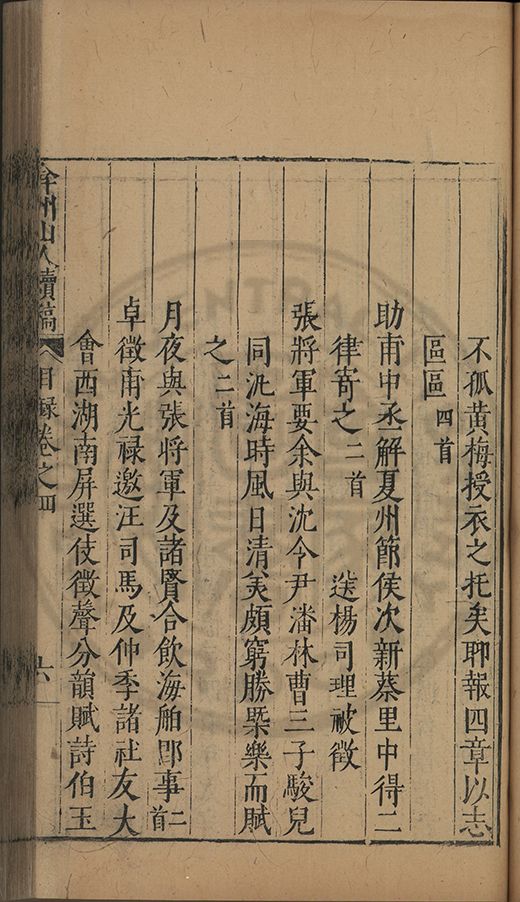 不孤黃梅授衣之托矣聊報四章以志
區區四首
助甫中丞解夏州節侯次新蔡里中得二
律寄之二首 送楊司理被徵
張將軍要余與沈令尹潘林曹三子駿兒
同汎海時風日清美頗窮勝槩樂而賦
之二首
月夜與張將軍及諸賢合飲海舶即事二首
卓徵甫光祿邀汪司馬及仲季諸社友大
會西湖南屏選伎徵聲分韻賦詩伯玉
弇州山人續稿 目錄卷之四 六